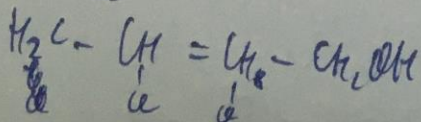 H₃C - CH = CH - CH₂OH
Cl Cl